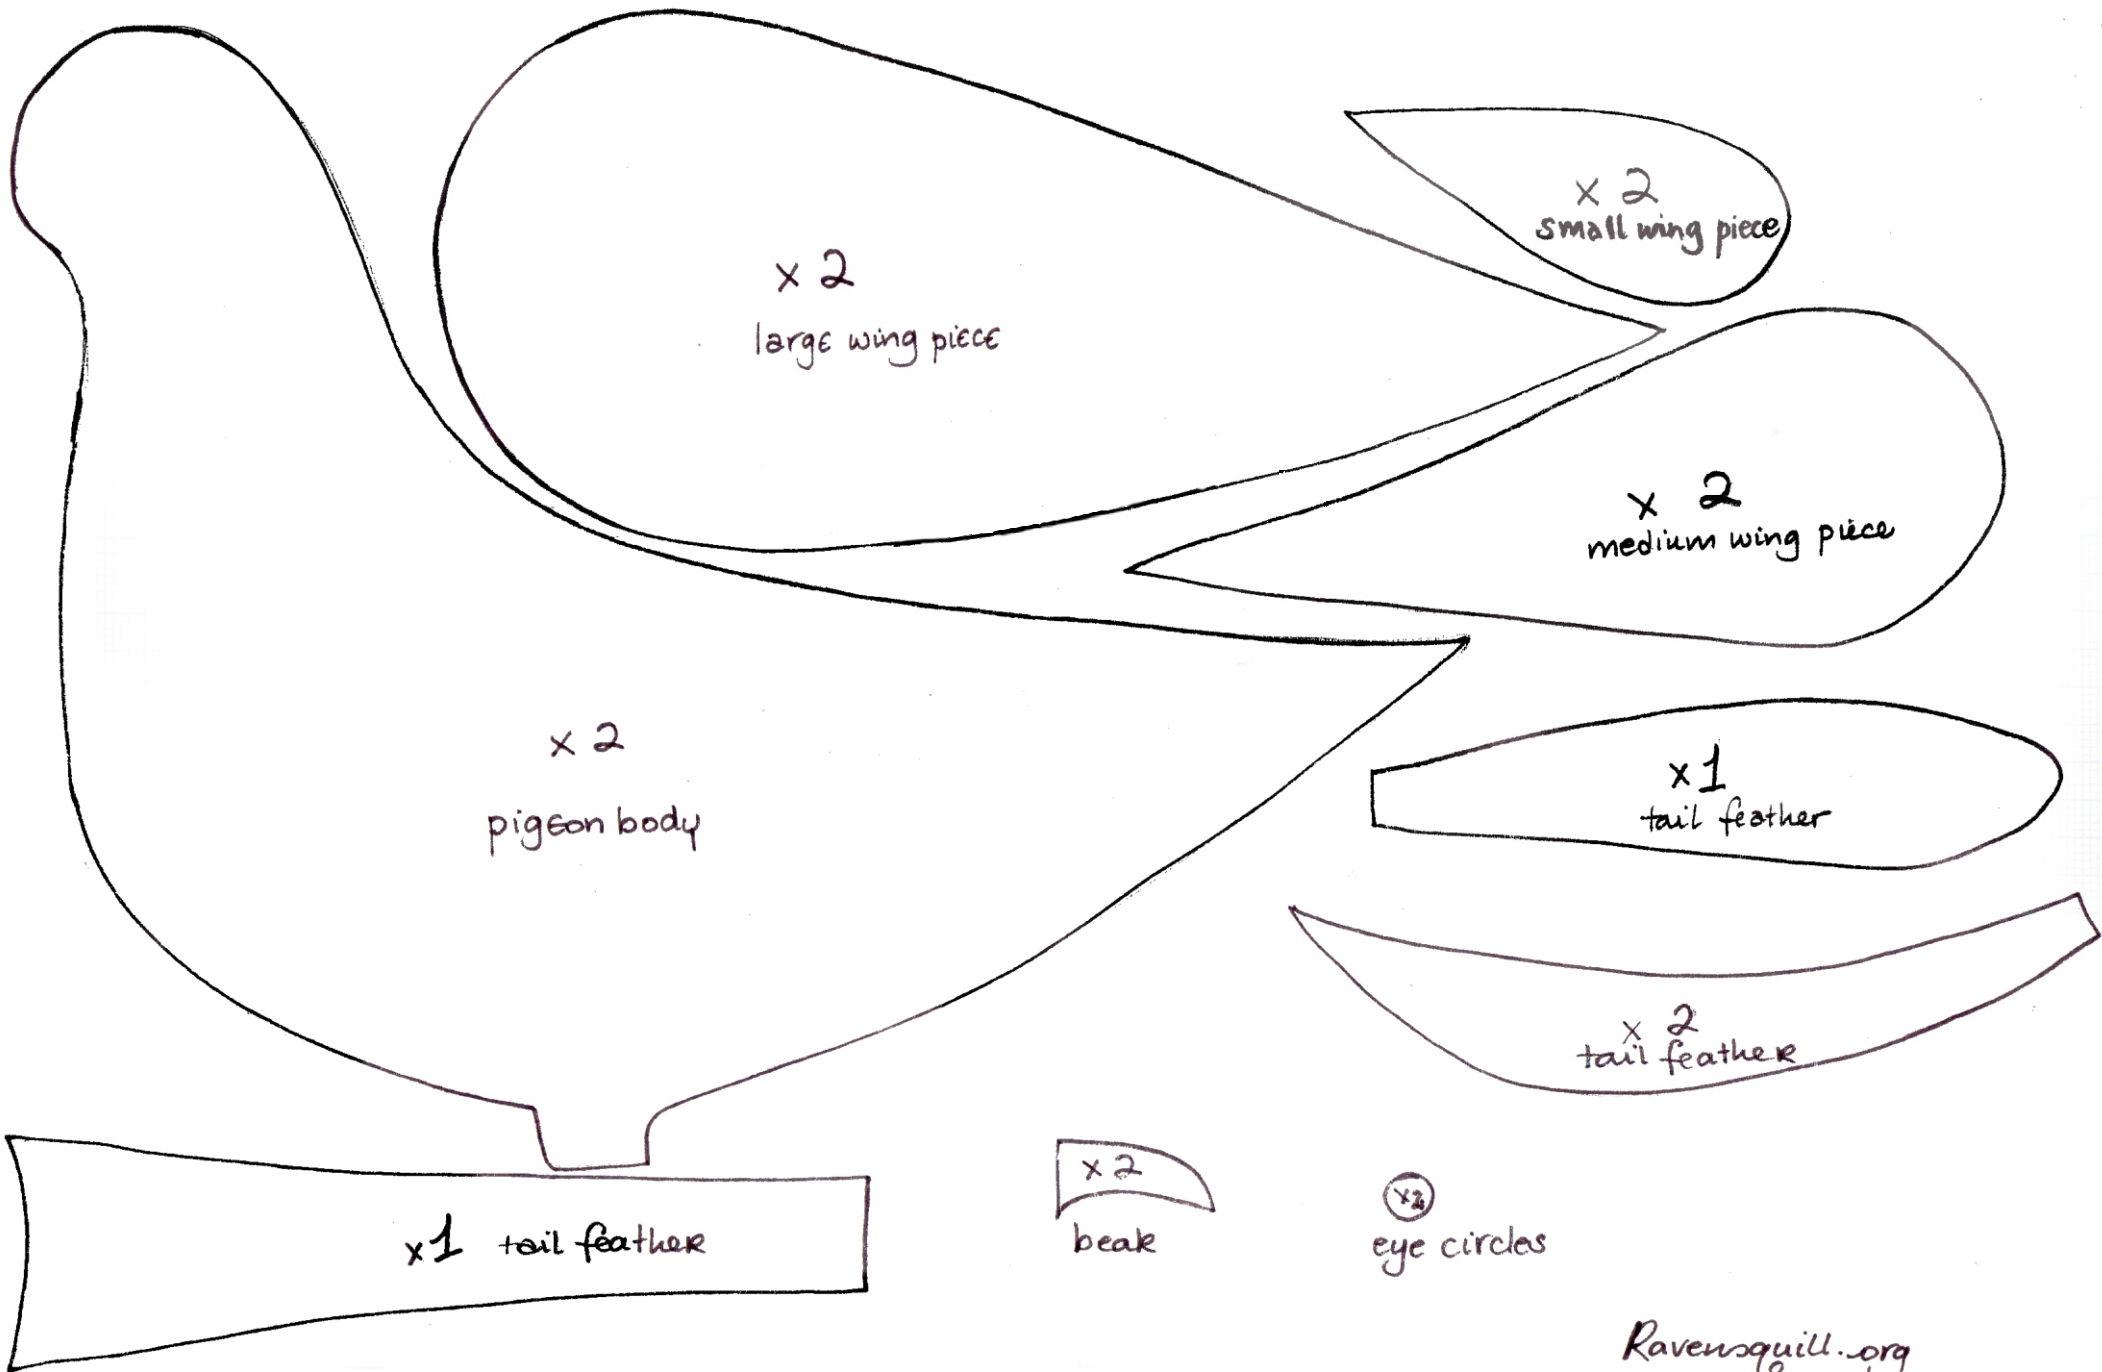 x 2
small wing piece
x 2
large wing piece
x 2
medium wing piece
x 2
pigeon body
x1
tail feather
x 2
tail feather
x1 tail feather
x 2
beak
x2
eye circles
Ravensquill.org